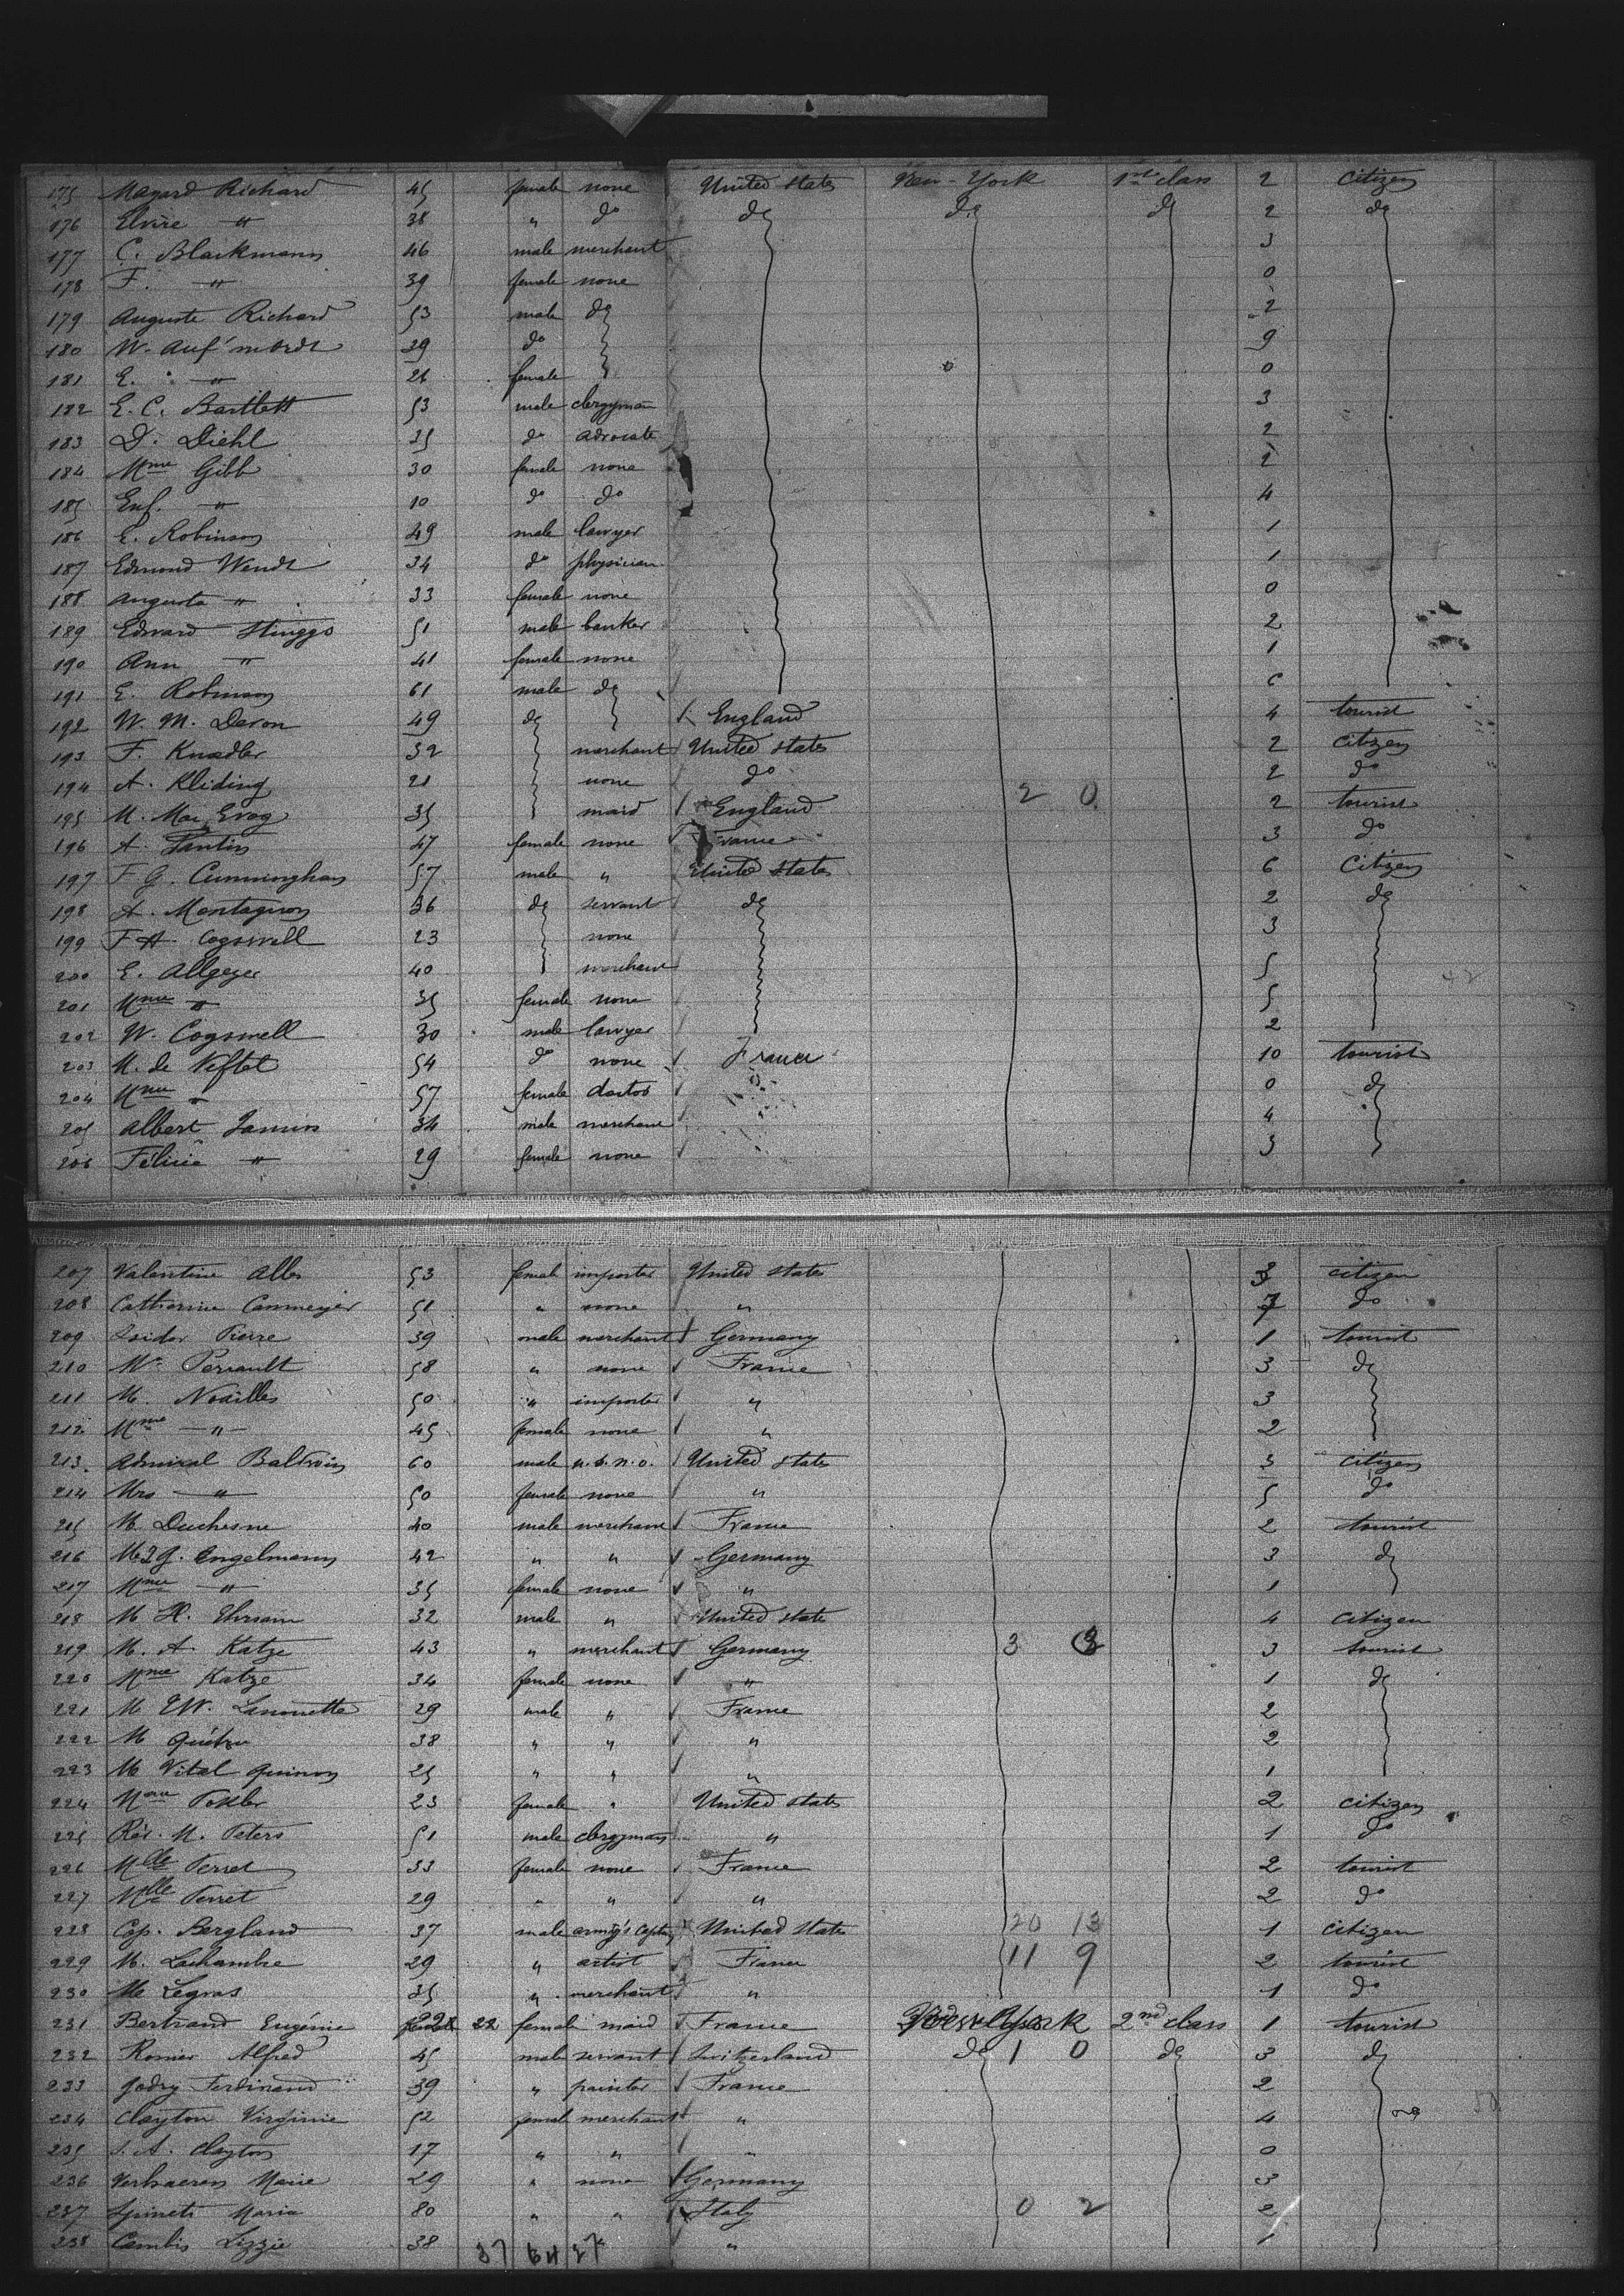 175 Mayard Richard 45 female none United States New-York 1st class 2 citizen
176 Elvire " 38 " do do do do 2 do
177 C. Blackmann 46 male merchant 3
178 F. " 39 female none 0
179 Auguste Richard 53 male do 2
180 W. Auf'mordt 39 do 9
181 E. " 26 female 0
182 E. C. Bartlett 53 male clergyman 3
183 D. Diehl 35 do advocate 2
184 Mme Gibb 30 female none 2
185 Enf. " 10 do do 4
186 E. Robinson 49 male lawyer 1
187 Edmond Wendt 34 do physician 1
188 Augusta " 33 female none 0
189 Edward Stinggs 51 male banker 2
190 Ann " 41 female none 1
191 E. Robinson 61 male do 6
192 W. M. Deron 49 do England 4 tourist
193 F. Knoedler 32 merchant United States 2 citizen
194 A. Kliding 21 none do 2 do
195 M. Mac Evog 35 maid England 2 0 2 tourist
196 A. Fantin 47 female none France 3 do
197 F G. Cunningham 57 male " United States 6 citizen
198 A. Montagnon 36 do servant do 2 do
199 F A Cogswell 23 none 3
200 E. Allgeyer 40 merchant 5
201 Mme " 35 female none 5
202 W. Cogswell 30 male lawyer 2
203 M. de Neftel 54 do none France 10 tourist
204 Mme " 57 female doctor 0 do
205 Albert Jamin 34 male merchant 4
206 Félicie " 29 female none 3
207 Valentine Alles 53 female importer United States 3 citizen
208 Catherine Cammeyer 51 " none " 7 do
209 Isidor Pierre 39 male merchant Germany 1 tourist
210 Mr. Perrault 58 " none France 3 do
211 M. Noailles 50 " importer " 3
212 Mme " 45 female none " 2
213 Admiral Baldwin 60 male u.s.n.o. United State 3 citizen
214 Mrs " 50 female none " 5 do
215 M. Duchesne 40 male merchant France 2 tourist
216 M. J G. Engelmann 42 " " Germany 3 do
217 Mme " 35 female none " 1
218 M H. Ehrsam 32 male " United State 4 citizen
219 M. A. Katze 43 " merchant Germany 3 3 3 tourist
220 Mme Katze 34 female none " 1 do
221 M EW. Lanouette 29 male " France 2
222 M Quétru 38 " " " 2
223 M Vital Quinon 25 " " " 1
224 Mme 23 female " United States 2 citizen
225 Rév. M. Peters 51 male clergyman " 1 do
226 Mlle Perret 33 female none France 2 tourist
227 Mlle Perret 29 " " " 2 do
228 Cap. Bergland 37 male army's Captain United States 20 13 1 citizen
229 M. Lachambre 29 " artist France 11 9 2 tourist
230 M Legras 35 " merchant " 1 do
231 Bertrand Eugénie 22 female maid France New York 2nd class 1 tourist
232 Romier Alfred 45 male servant Switzerland do 1 0 do 3 do
233 Godry Ferdinand 39 " painter France 2
234 Clayton Virginie 52 female merchant " 4
235 S. A. Clayton 17 " " " 0
236 Verhaeren Marie 29 " none Germany 3
237 Spineti Maria 80 " " Italy 0 2 2
238 Cambis Lizzie 38 " 1